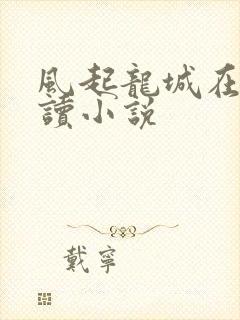 風起龍城在
讀小説
戴寧